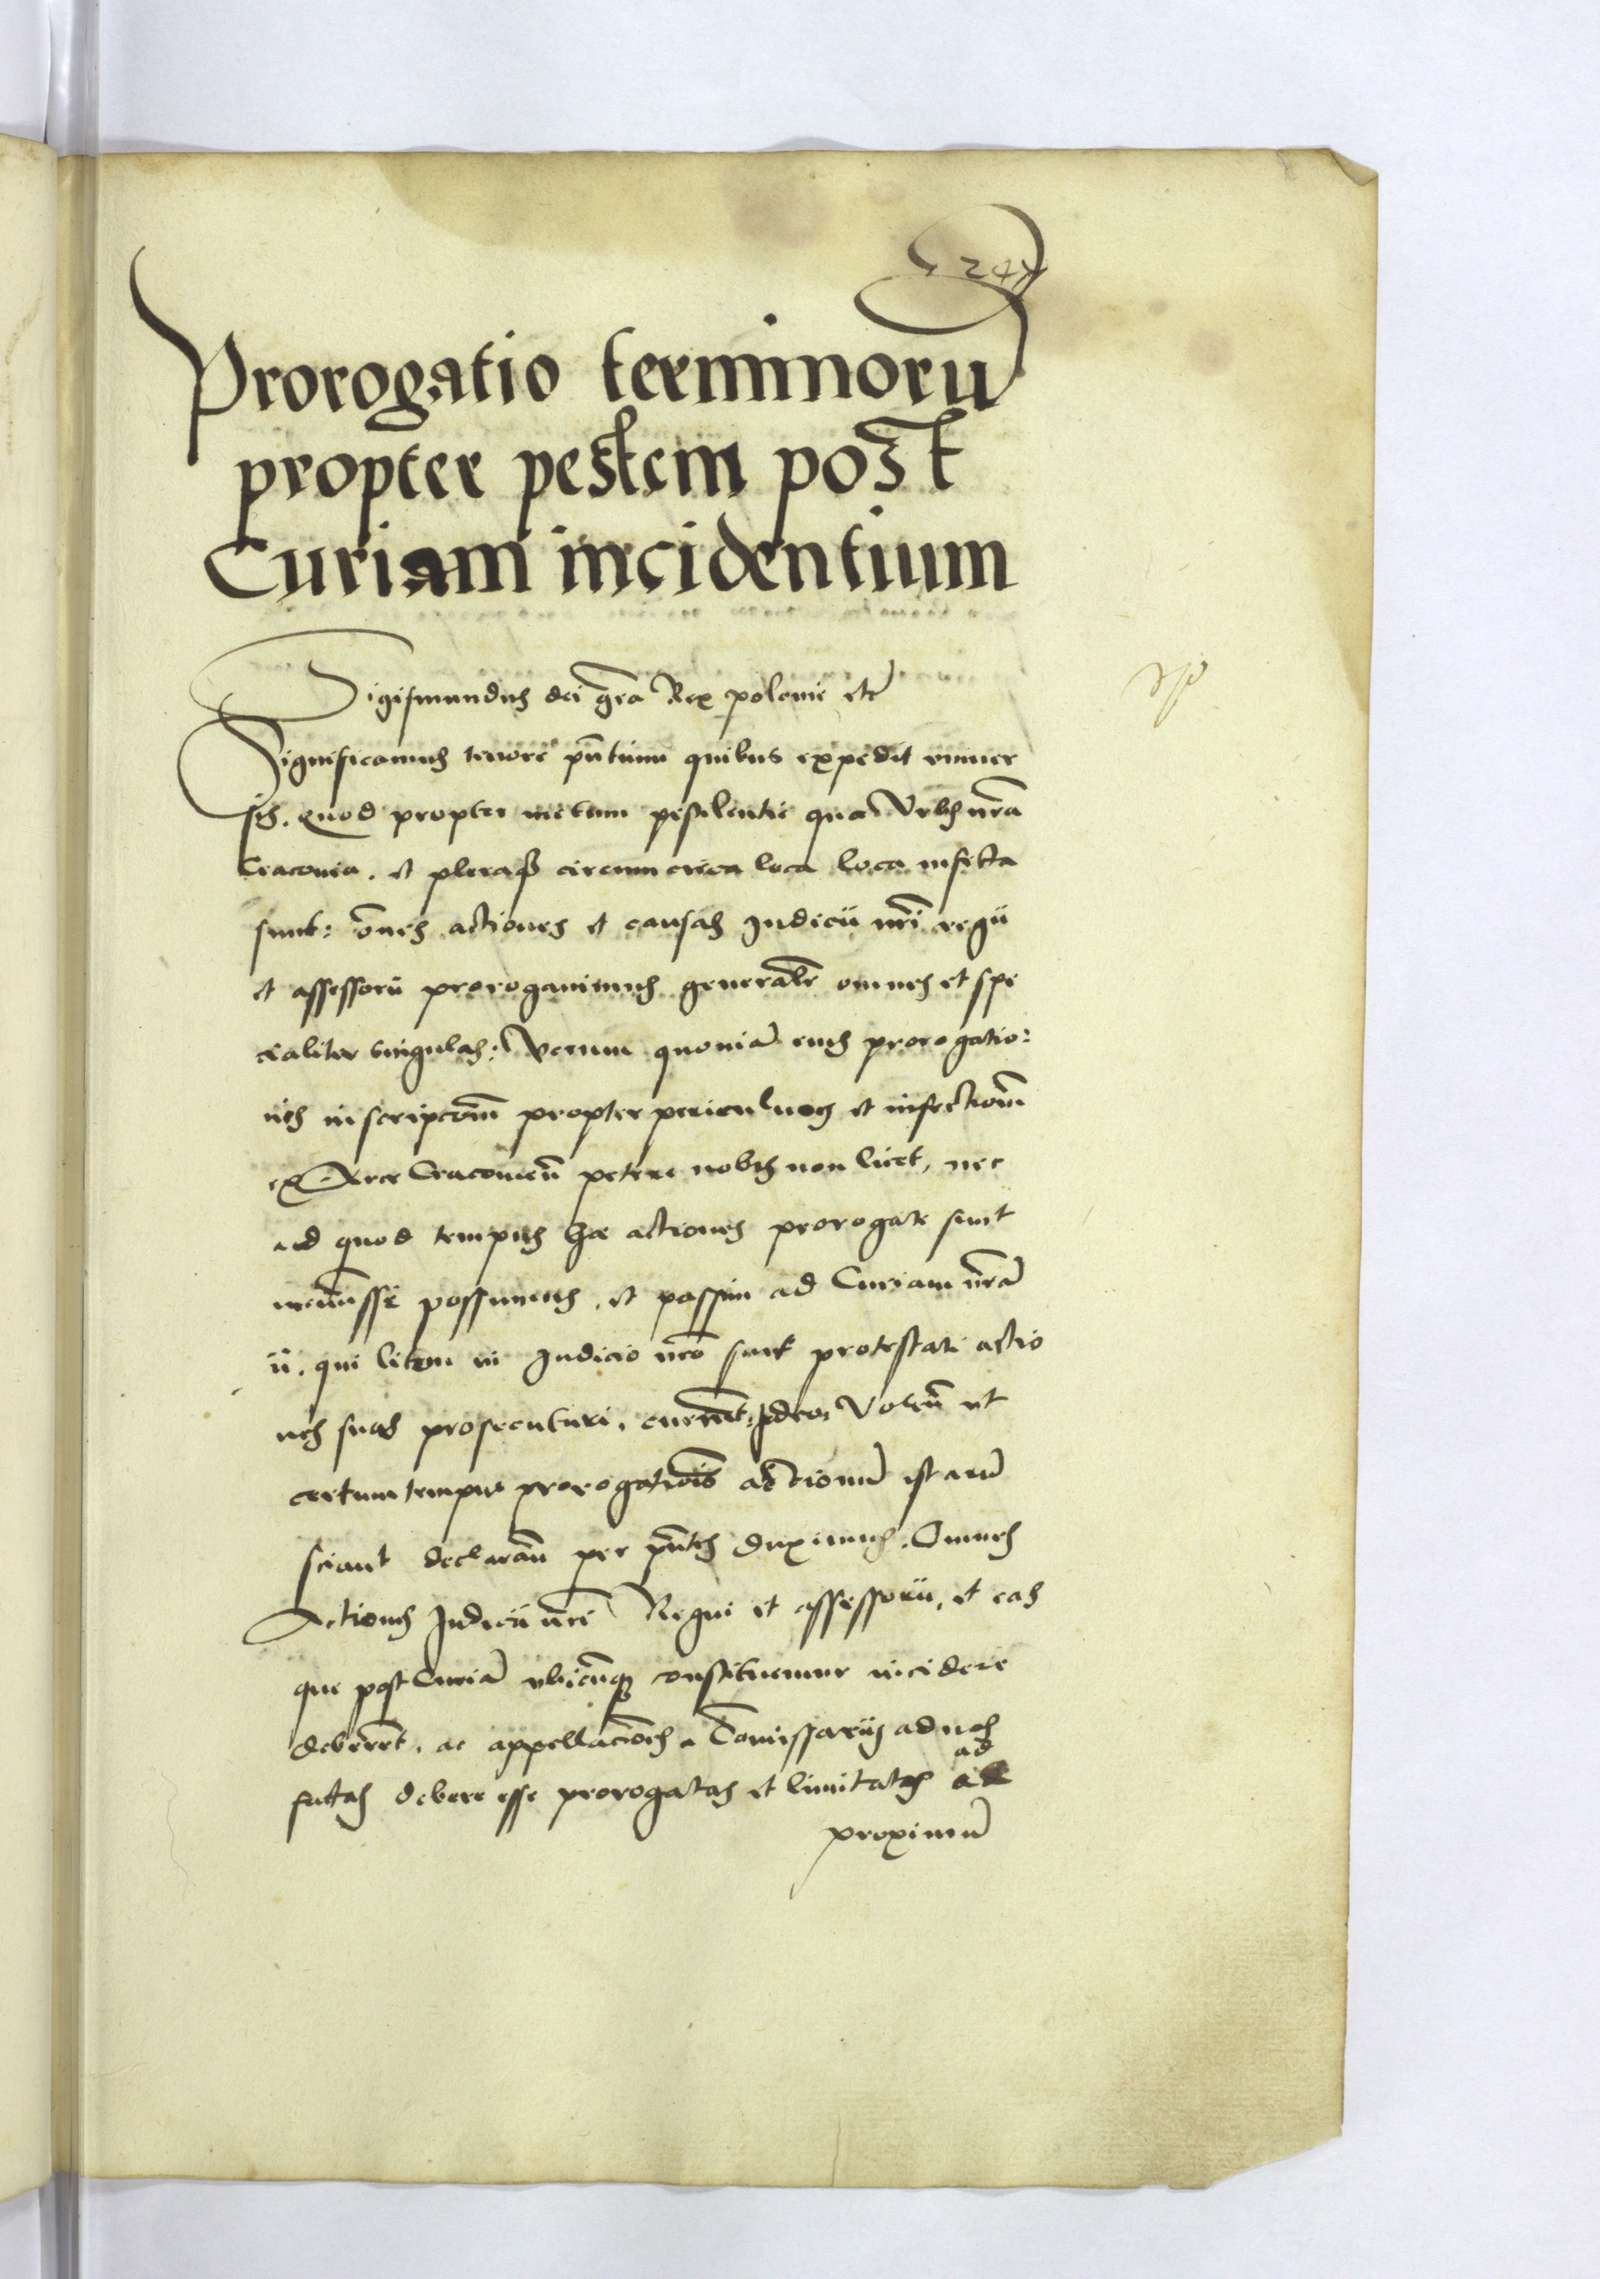 247
Prorogatio terminorū
propter pestem post
Curiam incidentium
Sigismundus dei gr̃a Rex polonie etc̃
Significamus tenore pñtium quibus expedit vniuer
sis. quod propter metum pestilentie qua Vrbs nr̃a
Cracouia. et pleraq3 circumcirca loca loca infecta
sunt: õnes actiones et causas Judicii nr̃i regii
et assessorũ prorogauimus generalr̃ omnes et spe
cialiter singulas: Verum quoniã eius prorogatio:
nis inscripcõem propter periculum et infectionẽ
ex Arce Cracouieñ petere nobis non licet, nec
ad quod tempus hae actiones prorogate sunt
meminisse possumus. et passim ad Curiam nr̃ã
ii. qui litem in Judicio nr̃o sunt protestati actio
nes suas prosecuturi. Ideo. Voleñ ut
certum tempus prorogatiõis actionũ istarũ
sciant declarañ per pñtes duximus. Omnes
Actiones Judicii nr̃i Regii et assessorũ, et eas
que post Curiã vbicũq3 constituemur incidere
deberẽt. ac appellaciões a Cõmissariis ad nos
factas debere esse prorogatas et limitatas ad
proximũ